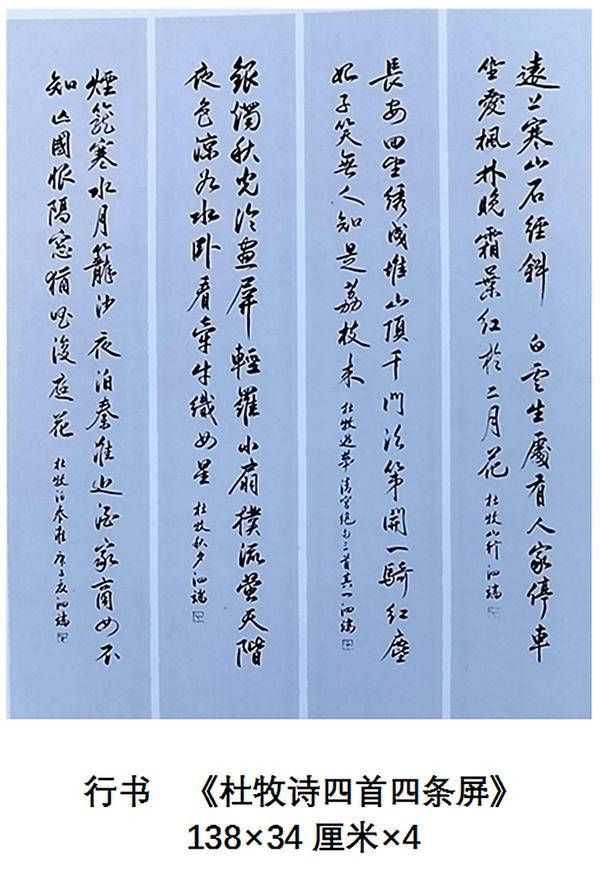 遠上寒山石經斜 白雲生處有人家停車
坐愛楓林晚霜葉紅於二月花 杜牧山行 泗端
長安回望绣成堆山頂千門次第開一騎紅塵
妃子笑無人知是荔枝来 杜牧過華清宫绝句三首其一 泗端
銀燭秋光冷畫屏輕羅小扇撲流螢天階
夜色凉如水卧看牵牛織女星 杜牧秋夕 泗端
煙籠寒水月籠沙夜泊秦淮近酒家商女不
知亡國恨隔窓猶唱後庭花 杜牧泊秦淮 庚子夏泗端
行书 《杜牧诗四首四条屏》
138×34 厘米×4